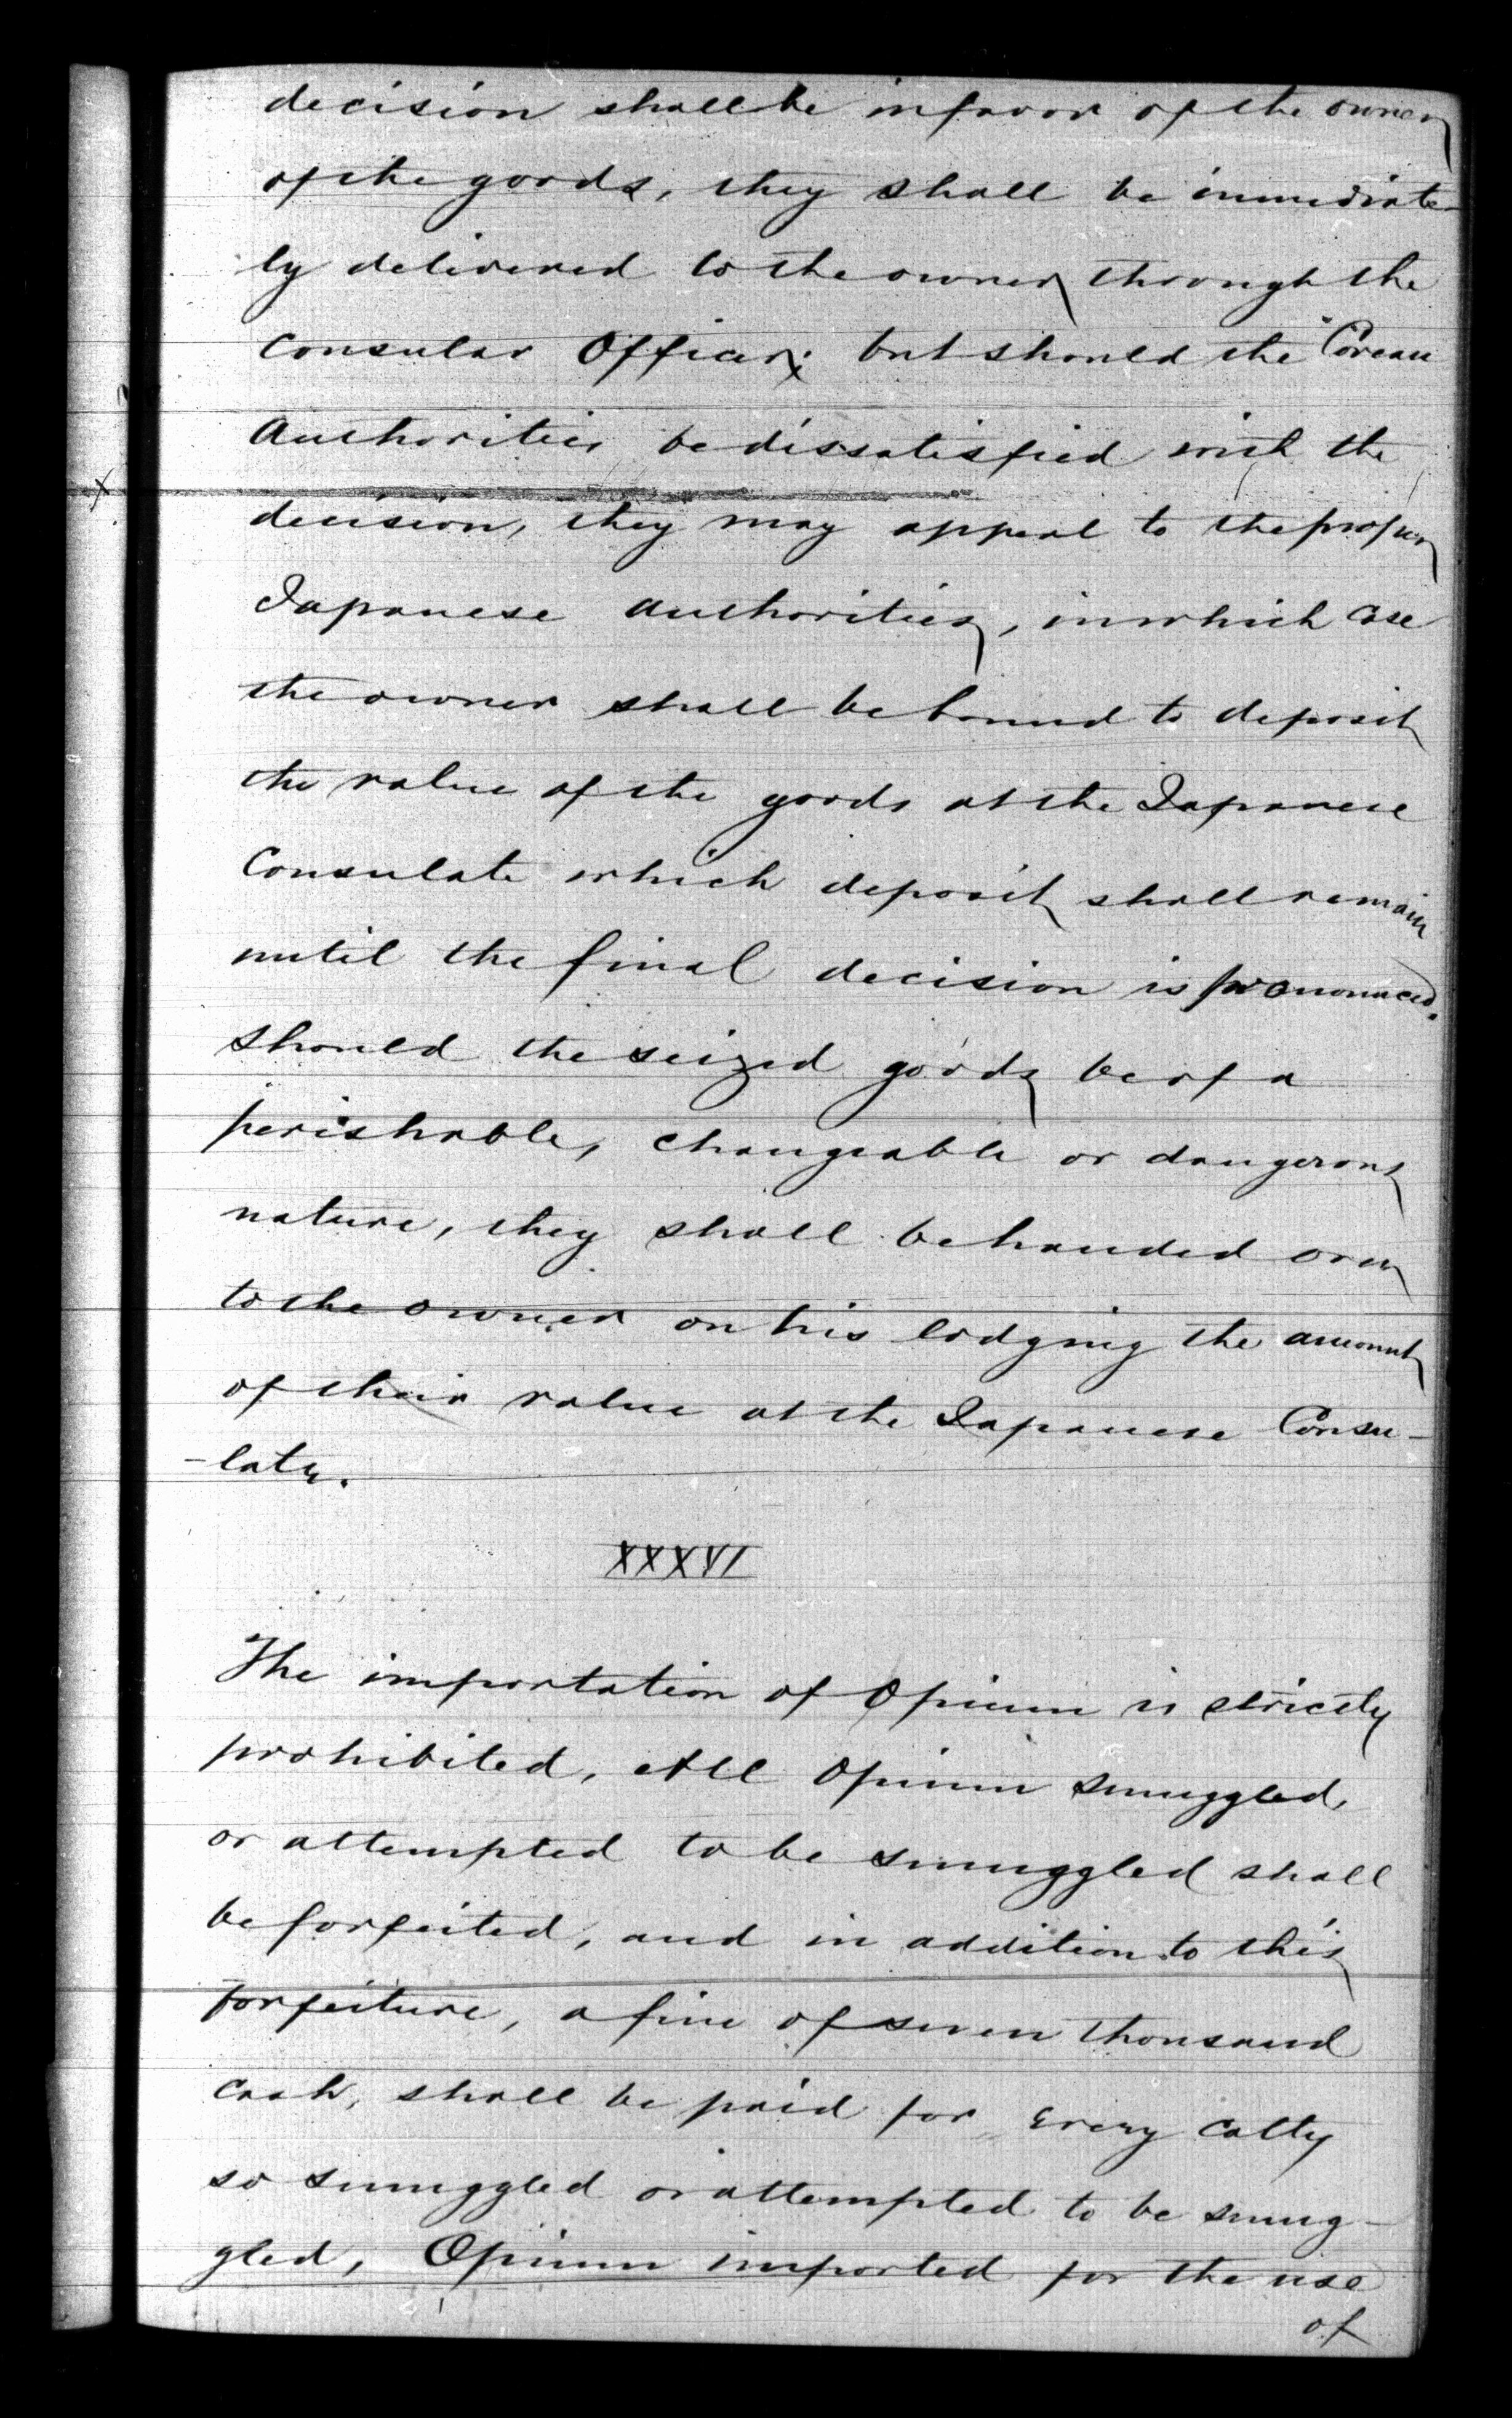 decision shall be in favor of the owner
of the goods, they shall be immediate-
ly delivered to the owner through the
Consular Officer; but should the Corean
Authorities be dissatisfied with the
decision, they may appeal to the proper
Japanese authorities, in which case
the owner shall be bound to deposit
the value of the goods at the Japanese
Consulate which deposit shall remain
until the final decision is pronounced.
Should the seized goods be of a
perishable, changeable or dangerous
nature, they shall be handed over
to the owner on his lodging the amount
of their value at the Japanese Consu-
-late.
XXXVI
The importation of Opium is strictly
prohibited, All Opium smuggled,
or attempted to be smuggled shall
be forfeited, and in addition to this
forfeiture, a fine of seven thousand
cash, shall be paid for every catty
so smuggled or attempted to be smug-
gled, Opium imported for the use
of